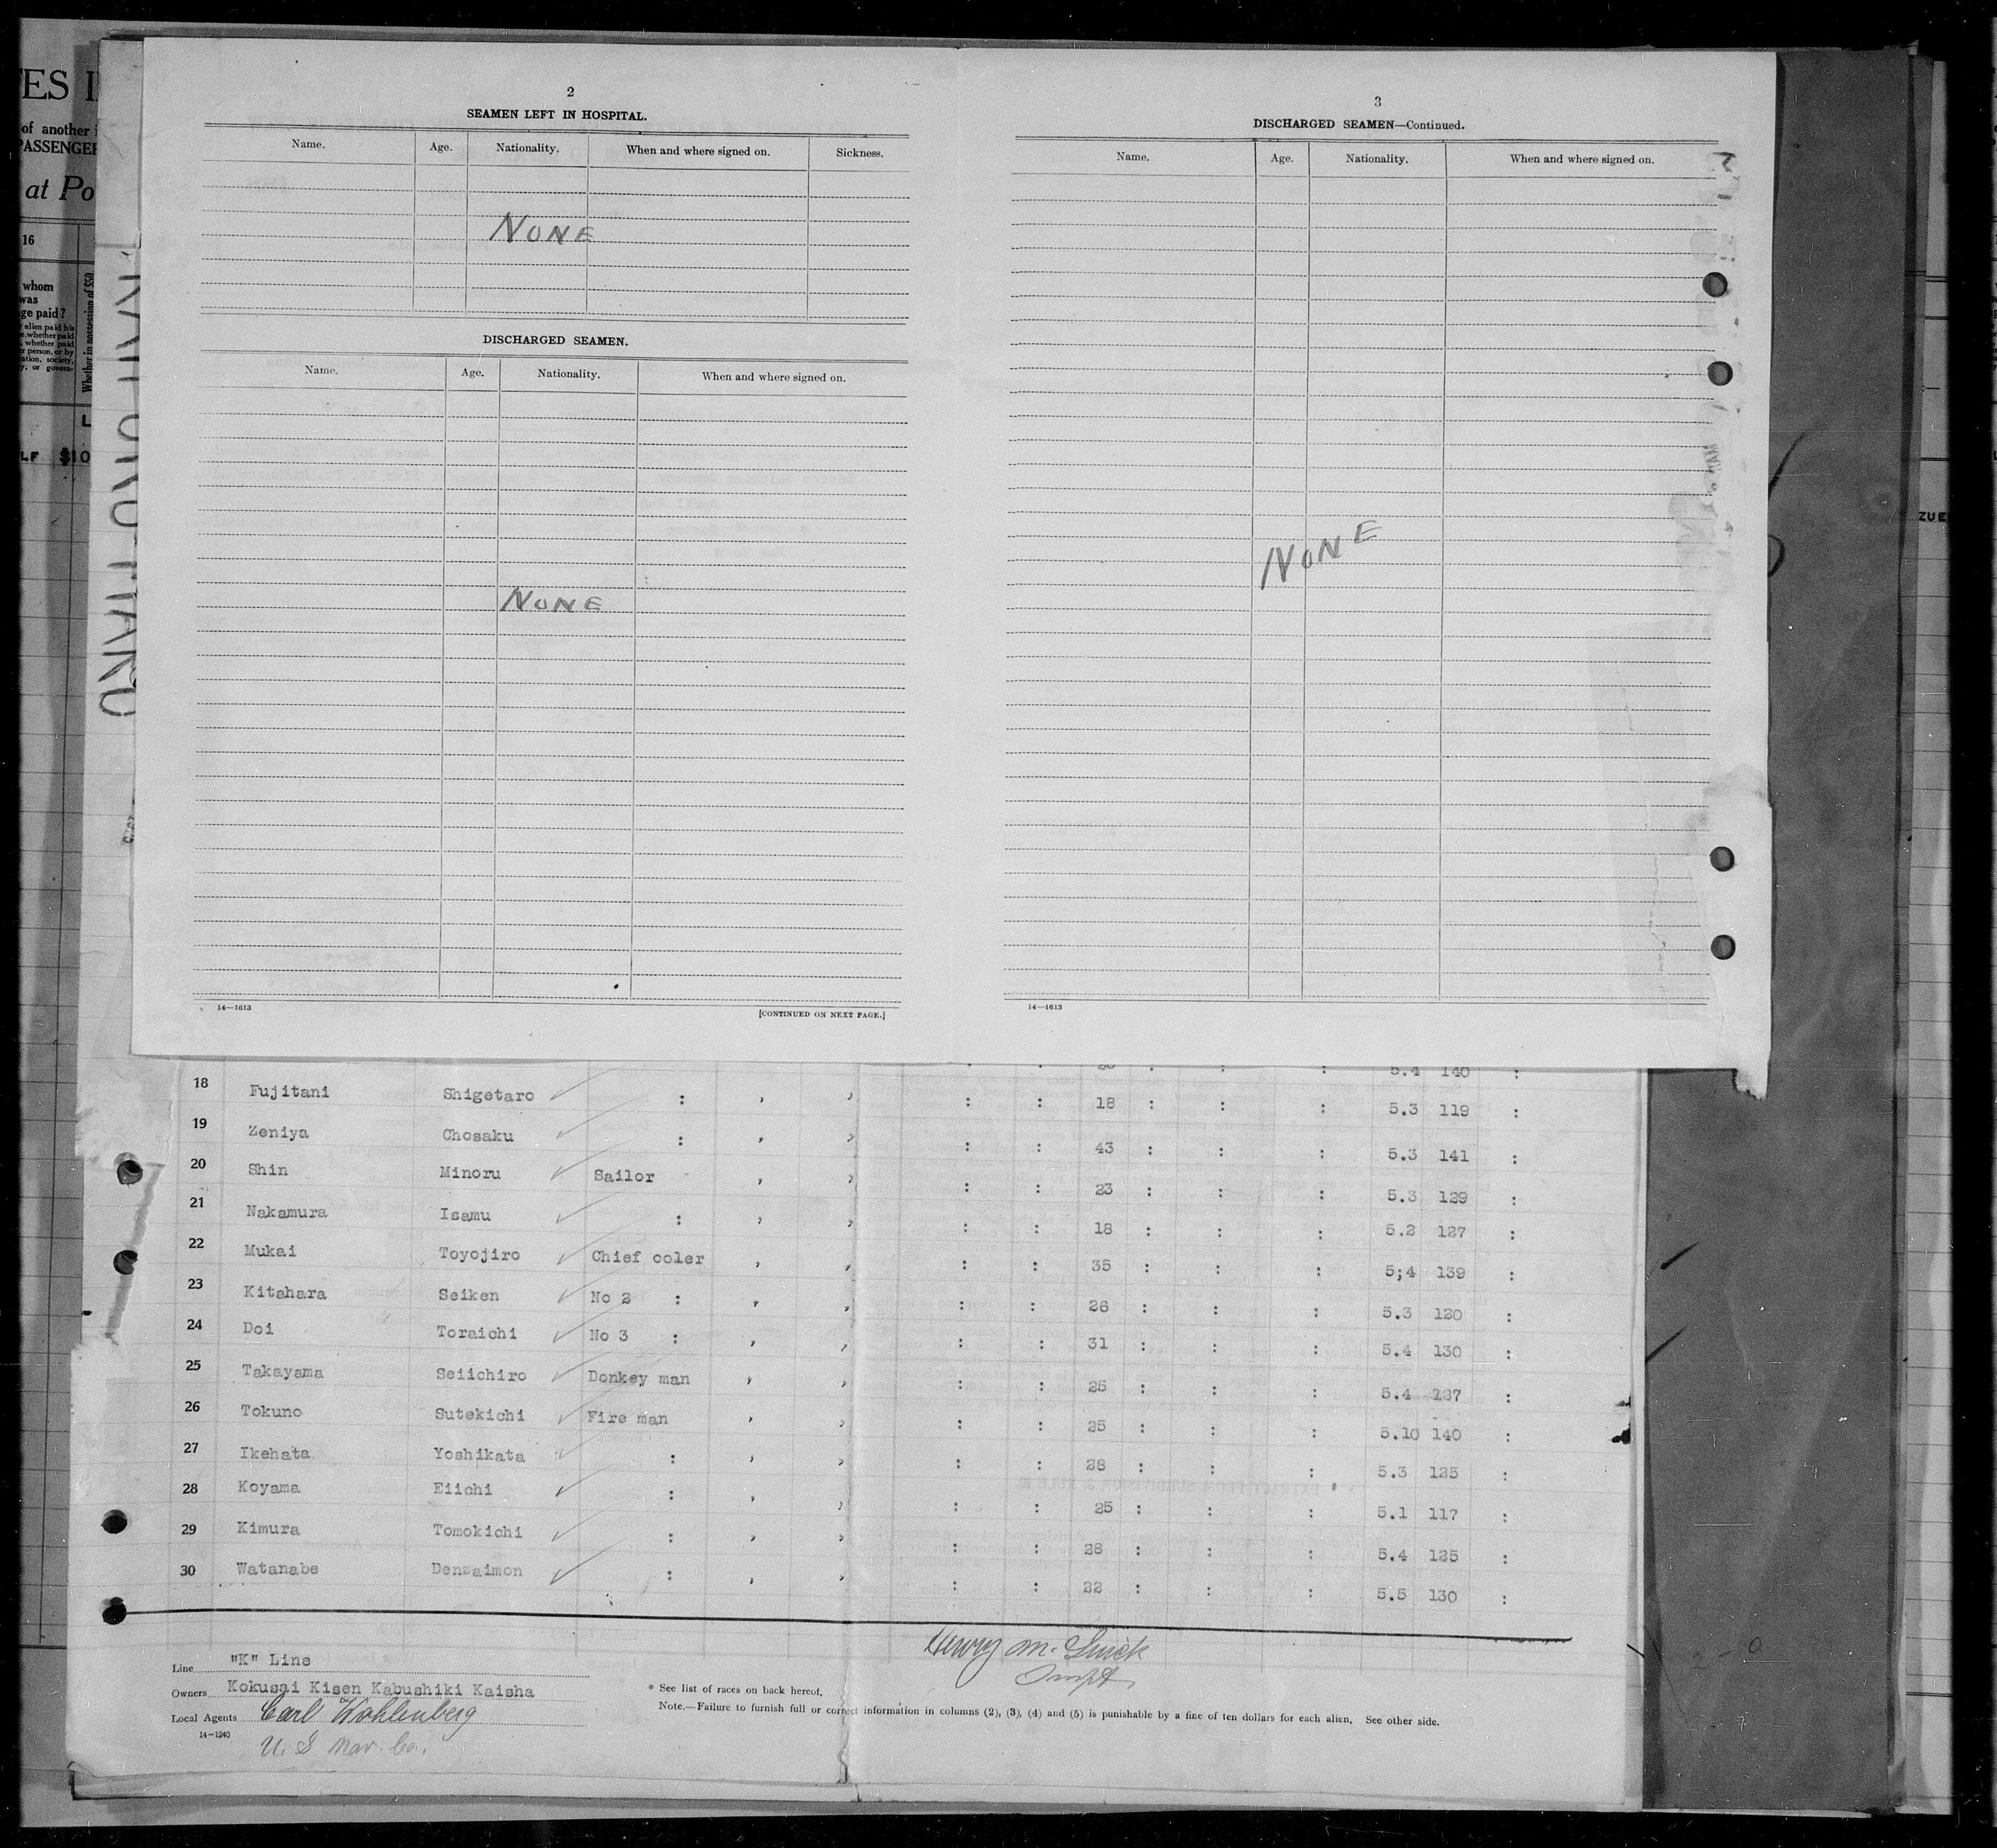 ES I
of another i
PASSENGER
at Po
16
whom
was
ge paid?
Whether in possession of $50
LF $10
2
SEAMEN LEFT IN HOSPITAL.
Name. Age. Nationality. When and where signed on. Sickness.
NONE
DISCHARGED SEAMEN.
Name. Age. Nationality. When and where signed on.
NONE
14—1613 [CONTINUED ON NEXT PAGE.]
3
DISCHARGED SEAMEN—Continued.
Name. Age. Nationality. When and where signed on.
NONE
14—1613
ZUE
5.4 140 :
18 Fujitani Shigetaro : , , : : 18 : : : 5.3 119 :
19 Zeniya Chosaku : , , : : 43 : : : 5.3 141 :
20 Shin Minoru Sailor , , : : 23 : : : 5.3 129 :
21 Nakamura Isamu : , , : : 18 : : : 5.2 127 :
22 Mukai Toyojiro Chief coler , , : : 35 : : : 5;4 139 :
23 Kitahara Seiken No 2 : , , : : 26 : : : 5.3 120 :
24 Doi Toraichi No 3 : , , : : 31 : : : 5.4 130 :
25 Takayama Seiichiro Donkey man , , : : 25 : : : 5.4 127 :
26 Tokuno Sutekichi Fire man , , : : 25 : : : 5.10 140 :
27 Ikehata Yoshikata : , , : : 28 : : : 5.3 125 :
28 Koyama Eiichi : , , : : 25 : : : 5.1 117 :
29 Kimura Tomokichi : , , : : 28 : : : 5.4 125 :
30 Watanabe Denzaimon : , , : : 22 : : : 5.5 130 :
Line "K" Line
Owners Kokusai Kisen Kabushiki Kaisha
Local Agents Carl Wohlenberg
14—1240
U. S Nav. Co.
Henry M.
* See list of races on back hereof.
Note.—Failure to furnish full or correct information in columns (2), (3), (4) and (5) is punishable by a fine of ten dollars for each alien. See other side.